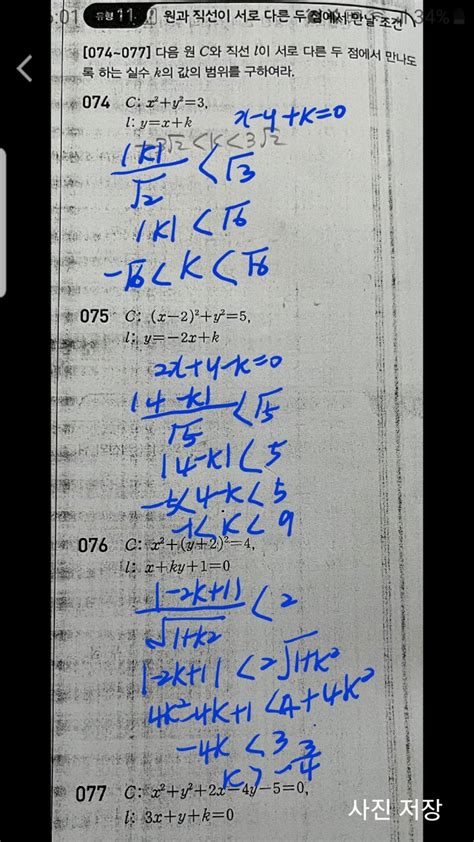 유형 11. 원과 직선이 서로 다른 두 점에서 만날 조건
34%
[074~077] 다음 원 C와 직선 l이 서로 다른 두 점에서 만나도
록 하는 실수 k의 값의 범위를 구하여라.
074 C: x²+y²=3,
l: y=x+k
x-y+k=0
3√2<k<3√2
|k|/√2 < √3
|k| < √6
-√6 < k < √6
075 C: (x-2)²+y²=5,
l: y=-2x+k
2x+y-k=0
|4-k|/√5 < √5
|4-k| < 5
-5<4-k<5
-1<k<9
076 C: x²+(y+2)²=4,
l: x+ky+1=0
|-2k+1|/√1+k² < 2
|-2k+1| < 2√1+k²
4k²-4k+1 < 4+4k²
-4k < 3
k > -3/4
077 C: x²+y²+2x-4y-5=0,
l: 3x+y+k=0
사진 저장